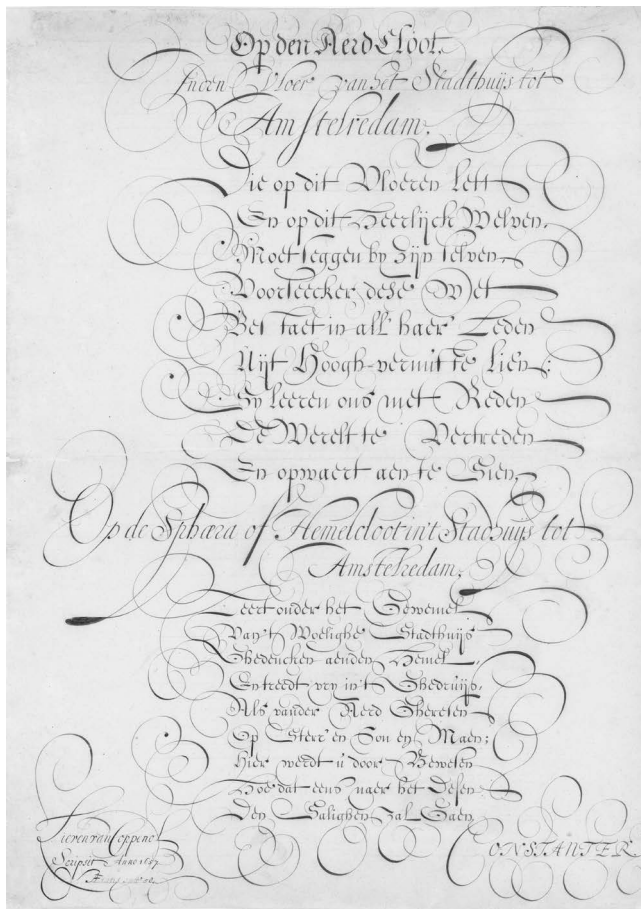 Op den Aerd Cloot.
Inden Vloer van het Stadthuys tot
Amstelredam.
Die op dit Vloeren lett
En op dit Heerlijck Welven,
Moet seggen by Zijn selven,
Voorseecker dese Wet
Bestaet in all haer Leden
Uijt Hoogh-vernuftte lien;
Sy leeren ons met Reden
De Werelt te Vertreden
En opwaert aen te Sien,
Op de Sphæra of Hemelclootint Stadhuys tot
Amstelredam,
Leert onder het Gewemel
Van't Woelighe Stadthuijs
Ghedencken aenden Hemel,
En treedt vry in't Ghedruijs,
Als vander Aerd Ghereten
Op Sterr en Son en Maen;
Hier werdt u door Beweten
Hoe dat eens naer het Desen
Den Salighen zal Gaen
Lieven van Coppenol
Scripsit Anno
CONSTANTER